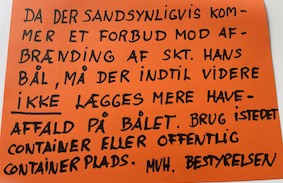 DA DER SANDSYNLIGVIS KOM-
MER ET FORBUD MOD AF-
BRÆNDING AF SKT. HANS
BÅL, MÅ DER INDTIL VIDERE
IKKE LÆGGES MERE HAVE-
AFFALD PÅ BÅLET. BRUG ISTEDET
CONTAINER ELLER OFFENTLIG
CONTAINERPLADS. MVH. BESTYRELSEN